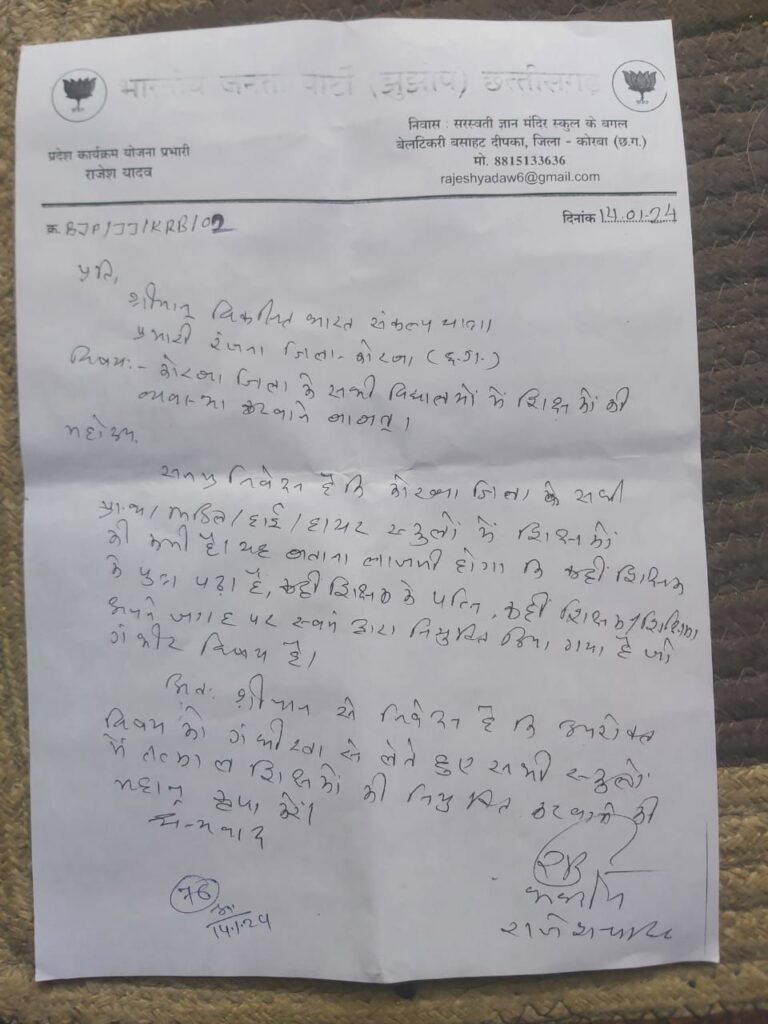 भारतीय जनता पार्टी (झुझोप) छत्तीसगढ़
निवास : सरस्वती ज्ञान मंदिर स्कुल के बगल
बेलटिकरी बसाहट दीपका, जिला - कोरबा (छ.ग.)
मो. 8815133636
rajeshyadaw6@gmail.com
प्रदेश कार्यक्रम योजना प्रभारी
राजेश यादव
क्र. BJP/JJ/KRB/02
दिनांक 14.01.24
प्रति,
श्रीमान् विकसित भारत संकल्प यात्रा
प्रभारी रंजना जिला - कोरबा (छ.ग.)
विषय:- कोरबा जिला के सभी विद्यालयों में शिक्षकों की
व्यवस्था करवाने बाबत्।
महोदय,
सनम्र निवेदन है कि कोरबा जिला के सभी
प्रा.शा/मिडिल/हाई/हायर स्कुलों में शिक्षकों
की कमी है। यह बताना लाजमी होगा कि कहीं शिक्षक
के पुत्र पढ़ा है, कहीं शिक्षक के पति, कहीं शिक्षक/शिक्षिका
अपने जगह पर स्वयं द्वारा नियुक्ति किया गया है जो
गंभीर विषय है।
अतः श्रीमान से निवेदन है कि उपरोक्त
विषय को गंभीरता से लेते हुए सभी स्कुलों
में तत्काल शिक्षकों की नियुक्ति करवाने की
महान् कृपा करें।
धन्यवाद
राजेश यादव
14.1.24